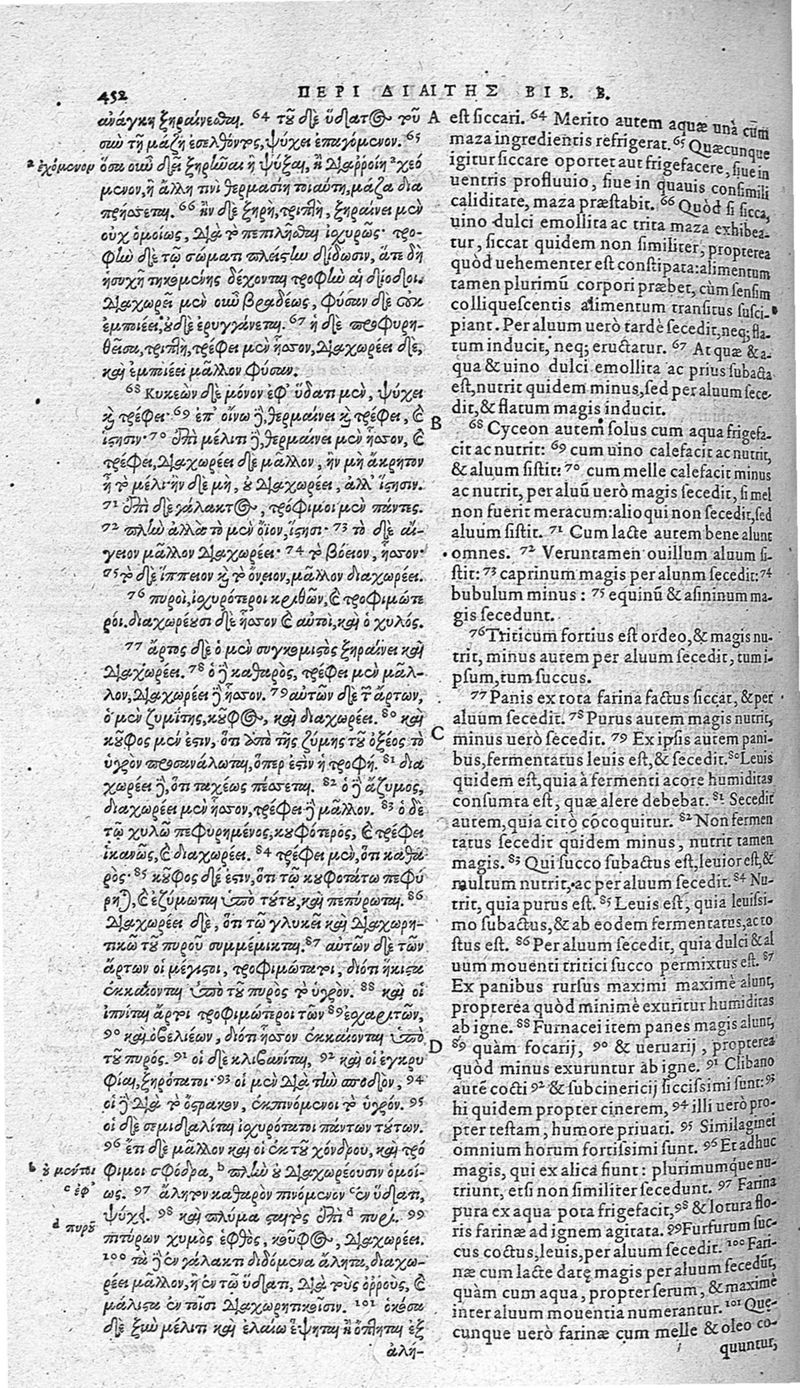 452
ΠΕΡΙ ΔΙΑΙΤΗΣ ΒΙΒ. Β.
ἀνάγκη ξηραίνεσθαι. 64 τοῦ δὲ ὕδατος τοῦ
σὺν τῇ μάζῃ ἐσελθόντος, ψύχει ἐπαγόμενον. 65
ὅσα οὖν δεῖ ξηρῶναι ἢ ψύξαι, ἢ διαρροίη ᵃ χεό
μενον, ἢ ἄλλη τινὶ θερμασίη τοιαύτη, μάζα δια
πρήσσεται. 66 ἢν δὲ ξηρὴ, τριπτὴ, ξηραίνει μὲν
οὐχ ὁμοίως, διὰ τὸ πεπιλῆσθαι ἰσχυρῶς· τρο-
φὴν δὲ τῷ σώματι πλείστην δίδωσιν, ἅτε δὴ
ἡσυχῆ τηκομένης δέχονται τροφὴν αἱ δίοδοι.
διαχωρεῖ μὲν οὖν βραδέως, φῦσαν δὲ οὐκ
ἐμποιέει, οὐδὲ ἐρυγγάνεται. 67 ἡ δὲ προφυρη-
θεῖσα, τριπτὴ, τρέφει μὲν ἧσσον, διαχωρεῖ δὲ,
καὶ ἐμποιέει μᾶλλον φῦσαν.
68 Κυκεὼν δὲ μόνον ἐφ' ὕδατι μὲν, ψύχει
καὶ τρέφει· 69 ἐπ' οἴνῳ δὲ, θερμαίνει καὶ τρέφει, καὶ
ἵστησιν· 70 ἐπὶ μέλιτι δὲ, θερμαίνει μὲν ἧσσον, καὶ
τρέφει, διαχωρέει δὲ μᾶλλον, ἢν μὴ ἄκρητον
ἦ τὸ μέλι· ἢν δὲ μὴ, οὐ διαχωρέει, ἀλλ' ἵστησιν.
71 ἐπὶ δὲ γάλακτος, τρόφιμοι μὲν πάντες.
72 πλὴν ἀλλὰ τὸ μὲν ὄϊον, ἵστησι· 73 τὸ δὲ αἴ-
γειον μᾶλλον διαχωρέει· 74 τὸ βόειον, ἧσσον·
75 τὸ δὲ ἵππειον καὶ τὸ ὄνειον, μᾶλλον διαχωρέει.
76 πυροὶ, ἰσχυρότεροι κριθῶν, καὶ τροφιμώτε
ροι. διαχωρέουσι δὲ ἧσσον καὶ αὐτοὶ, καὶ ὁ χυλός.
77 ἄρτος δὲ ὁ μὲν συγκομιστὸς ξηραίνει καὶ
διαχωρέει. 78 ὁ δὲ καθαρὸς, τρέφει μὲν μᾶλ-
λον, διαχωρέει δὲ ἧσσον. 79 αὐτῶν δὲ τῶν ἄρτων,
ὁ μὲν ζυμίτης, κοῦφος, καὶ διαχωρέει. 80 καὶ
κοῦφος μέν ἐστιν, ὅτι ὑπὸ τῆς ζύμης τοῦ ὀξέος τὸ
ὑγρὸν προσανάλωται, ὅπερ ἐστὶν ἡ τροφή. 81 δια
χωρέει δὲ, ὅτι ταχέως πέσσεται. 82 ὁ δὲ ἄζυμος,
διαχωρέει μὲν ἧσσον, τρέφει δὲ μᾶλλον. 83 ὁ δὲ
τῷ χυλῷ πεφυρημένος, κουφότερος, καὶ τρέφει
ἱκανῶς, καὶ διαχωρέει. 84 τρέφει μὲν, ὅτι καθα
ρός· 85 κοῦφος δέ ἐστιν, ὅτι τῷ κουφοτάτῳ πεφύ
ρηται, καὶ ἐζύμωται ὑπὸ τούτου, καὶ πεπύρωται. 86
διαχωρέει δὲ, ὅτι τῷ γλυκεῖ καὶ διαχωρη-
τικῷ τοῦ πυροῦ συμμέμικται. 87 αὐτῶν δὲ τῶν
ἄρτων οἱ μέγιστοι, τροφιμώτατοι, διότι ἥκιστα
ἐκκαίονται ὑπὸ τοῦ πυρὸς τὸ ὑγρόν. 88 καὶ οἱ
ἰπνῖται ἄρτοι τροφιμώτεροι τῶν 89 ἐσχαριτῶν,
90 καὶ ὀβελιέων, διότι ἧσσον ἐκκαίονται ὑπὸ
τοῦ πυρός. 91 οἱ δὲ κλιβανῖται, 92 καὶ οἱ ἐγκρυ
φίαι, ξηρότατοι· 93 οἱ μὲν διὰ τὴν σποδὸν, 94
οἱ δὲ διὰ τὸ ὄστρακον, ἐκπινόμενοι τὸ ὑγρόν. 95
οἱ δὲ σεμιδαλῖται ἰσχυρότατοι πάντων τούτων.
96 ἔτι δὲ μᾶλλον καὶ οἱ ἐκ τοῦ χόνδρου, καὶ τρό
φιμοι σφόδρα, ᵇ πλὴν οὐ διαχωρέουσιν ὁμοί-
ως. 97 ἄλητον καθαρὸν πινόμενον ᶜ ἐν ὕδατι,
ψύχει. 98 καὶ πλύμα σταιτὸς ἐπὶ ᵈ πυρί. 99
πιτύρων χυμὸς ἑφθὸς, κοῦφος, διαχωρέει.
100 τὰ δὲ ἐν γάλακτι διδόμενα ἄλητα, διαχω-
ρέει μᾶλλον, ἢ ἐν τῷ ὕδατι, διὰ τοὺς ὀρροὺς, καὶ
μάλιστα ἐν τοῖσι διαχωρητικοῖσιν. 101 ὁκόσα
δὲ ξὺν μέλιτι καὶ ἐλαίῳ ἕψηται ἢ ὀπτῆται ἐξ
ἀλή-
ᵃ ἐχόμενον
ᵇ ὁ μοῦτοι
ᶜ ἐφ'
ᵈ πυρὸς
A
B
C
D
est siccari. 64 Merito autem aquæ unà cũm
maza ingredientis refrigerat. 65 Quæcunque
igitur siccare oportet aut frigefacere, siue in
uentris profluuio, siue in quauis consimili
caliditate, maza præstabit. 66 Quòd si sicca,
uino dulci emollita ac trita maza exhibea-
tur, siccat quidem non similiter, propterea
quòd uehementer est constipata: alimentum
tamen plurimũ corpori præbet, cùm sensim
colliquescentis alimentum transitus susci-
piant. Per aluum uerò tardè secedit, neq; fla-
tum inducit, neq; eructatur. 67 At quæ & a-
qua & uino dulci emollita ac prius subacta
est, nutrit quidem minus, sed per aluum sece-
dit, & flatum magis inducit.
68 Cyceon autem solus cum aqua frigefa-
cit ac nutrit: 69 cum uino calefacit ac nutrit,
& aluum sistit: 70 cum melle calefacit minus
ac nutrit, per aluũ uerò magis secedit, si mel
non fuerit meracum: alioqui non secedit, sed
aluum sistit. 71 Cum lacte autem bene alunt
omnes. 72 Veruntamen ouillum aluum si-
stit: 73 caprinum magis per alunm secedit: 74
bubulum minus: 75 equinũ & asininum ma-
gis secedunt.
76 Triticum fortius est ordeo, & magis nu-
trit, minus autem per aluum secedit, tum i-
psum, tum succus.
77 Panis ex tota farina factus siccat, & per
aluum secedit. 78 Purus autem magis nutrit,
minus uerò secedit. 79 Ex ipsis autem pani-
bus, fermentatus leuis est, & secedit. 80 Leuis
quidem est, quia à fermenti acore humiditas
consumta est, quæ alere debebat. 81 Secedit
autem, quia citò cõcoquitur. 82 Non fermen
tatus secedit quidem minus, nutrit tamen
magis. 83 Qui succo subactus est, leuior est, &
multum nutrit, ac per aluum secedit. 84 Nu-
trit, quia purus est. 85 Leuis est, quia leuissi-
mo subactus, & ab eodem fermentatus, ac to
stus est. 86 Per aluum secedit, quia dulci & al
uum mouenti tritici succo permixtus est. 87
Ex panibus rursus maximi maximè alunt,
propterea quòd minimè exuritur humiditas
ab igne. 88 Furnacei item panes magis alunt,
89 quàm focarij, 90 & ueruarij, propterea
quòd minus exuruntur ab igne. 91 Clibano
autẽ cocti 92 & subcinericij siccissimi sunt: 93
hi quidem propter cinerem, 94 illi uerò pro-
pter testam, humore priuati. 95 Similaginei
omnium horum fortissimi sunt. 96 Et adhuc
magis, qui ex alica fiunt: plurimumque nu-
triunt, etsi non similiter secedunt. 97 Farina
pura ex aqua pota frigefacit, 98 & lotura flo-
ris farinæ ad ignem agitata. 99 Furfurum suc-
cus coctus, leuis, per aluum secedit. 100 Fari-
næ cum lacte datę magis per aluum secedũt,
quàm cum aqua, propter serum, & maximè
inter aluum mouentia numerantur. 101 Quę-
cunque uerò farinæ cum melle & oleo co-
quuntur,